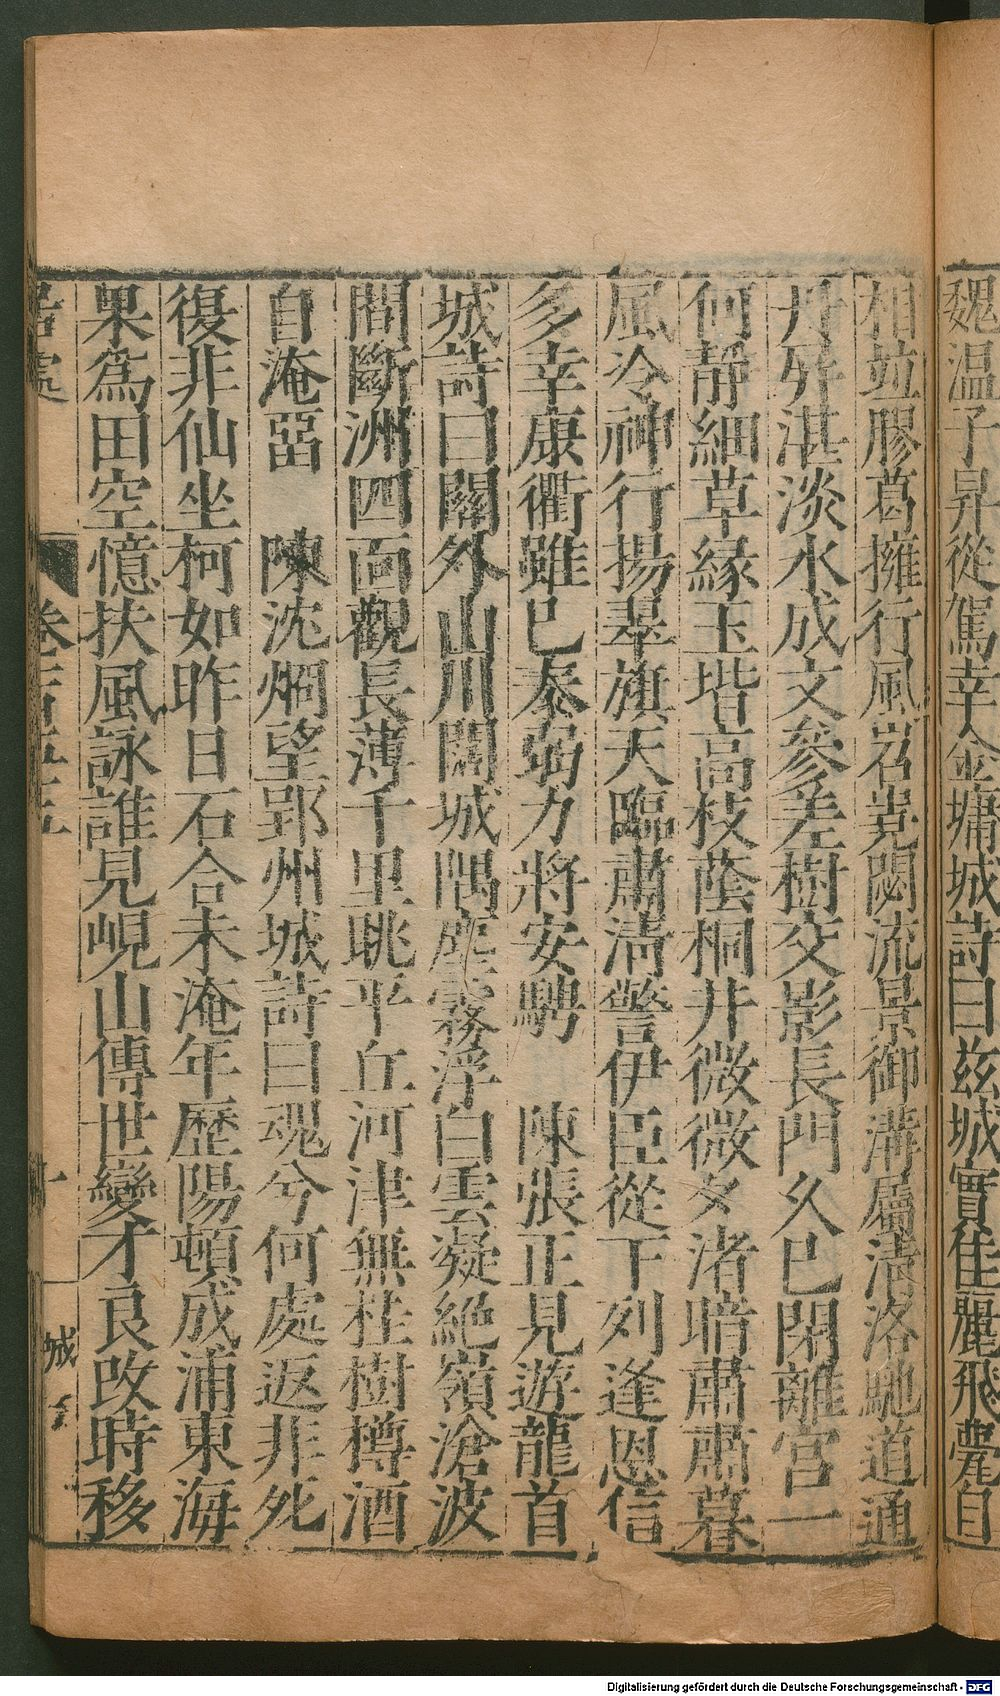 魏温子昇從駕幸金墉城詩曰兹城實佳麗飛甍自
相竝膠葛擁行風岧嶤閟流景御溝屬清洛馳道通
丹屏湛淡水成文參差樹交影長門久已閉離宫一
何靜細草緣玉堦高枝蔭桐井微微夕渚暗肅肅暮
風冷神行揚翠旗天臨肅清警伊臣從下列逢恩信
多幸康衢雖已泰弱力將安騁　陳張正見遊龍首
城詩曰關外山川闊城隅塵霧浮白雲凝絶嶺滄波
間斷洲四面觀長薄千里眺平丘河津無桂樹樽酒
自淹留　陳沈烱望郢州城詩曰魂兮何處返非死
復非仙坐柯如昨日石合未淹年歷陽頓成浦東海
果爲田空憶扶風詠誰見峴山傳世變才良改時移
居處
城
Digitalisierung gefördert durch die Deutsche Forschungsgemeinschaft - DFG